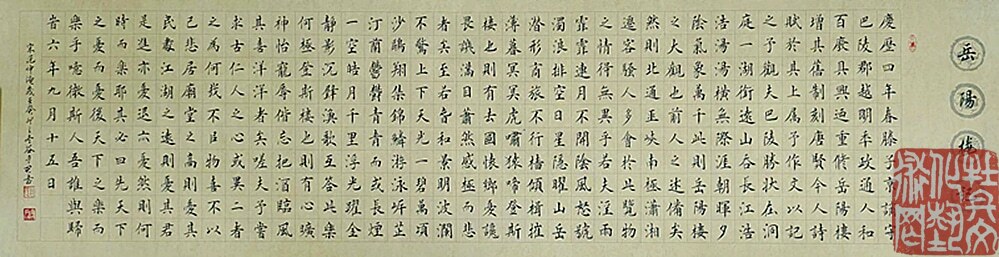 岳陽樓記
慶歷四年春滕子京謫守
巴陵郡越明年政通人和
百廢具興迺重修岳陽樓
增其舊制刻唐賢今人詩
賦於其上屬予作文以記
之予觀夫巴陵勝狀在洞
庭一湖銜遠山吞長江浩
浩湯湯橫無際涯朝暉夕
陰氣象萬千此則岳陽樓
之大觀也前人之述備矣
然則北通巫峽南極瀟湘
遷客騷人多會於此覽物
之情得無異乎若夫淫雨
霏霏連月不開陰風怒號
濁浪排空日星隱曜山岳
潛形商旅不行檣傾楫摧
薄暮冥冥虎嘯猿啼登斯
樓也則有去國懷鄉憂讒
畏譏滿目蕭然感極而悲
者矣至若春和景明波瀾
不驚上下天光一碧萬頃
沙鷗翔集錦鱗游泳岸芷
汀蘭鬱鬱青青而或長煙
一空皓月千里浮光躍金
靜影沉璧漁歌互答此樂
何極登斯樓也則有心曠
神怡寵辱偕忘把酒臨風
其喜洋洋者矣嗟夫予嘗
求古仁人之心或異二者
之為何哉不以物喜不以
己悲居廟堂之高則憂其
民處江湖之遠則憂其君
是進亦憂退亦憂然則何
時而樂耶其必曰先天下
之憂而憂後天下之樂而
樂乎噫微斯人吾誰與歸
旹六年九月十五日
宋范仲淹